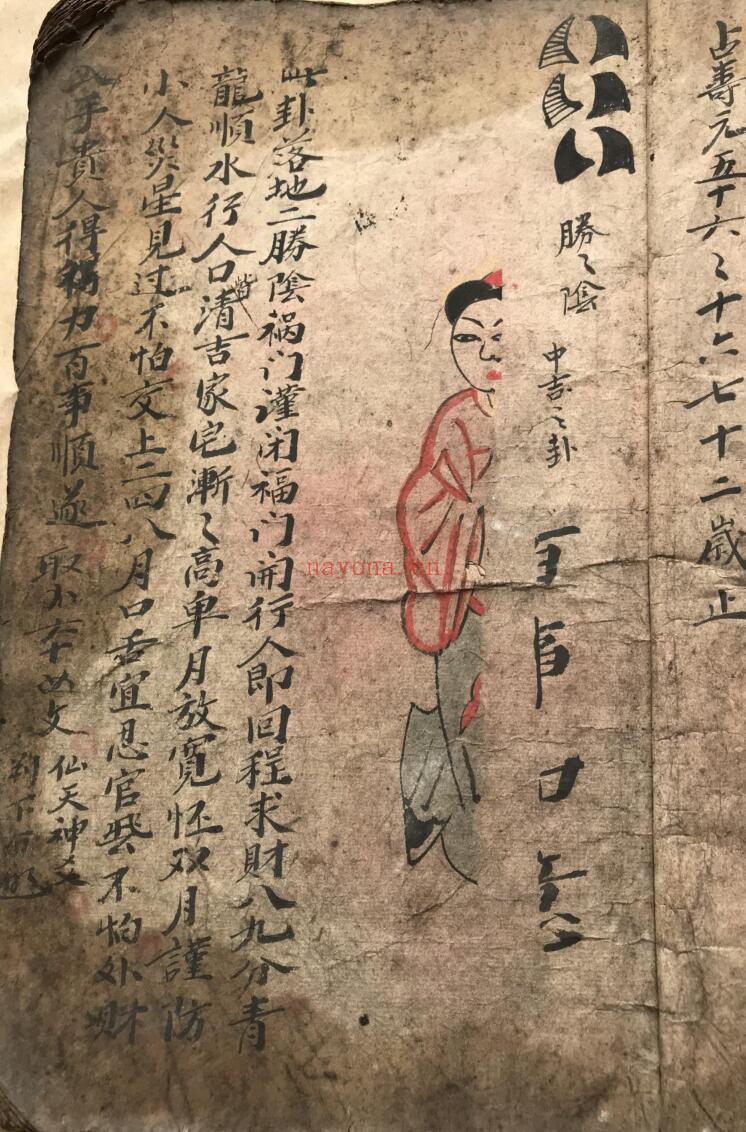 占壽元五十六〻十六七十二歲止
勝〻陰
中吉之卦
此卦落地二勝陰禍门謹闭福门開行人即回程求財八九分青
龍順水行人口清吉家宅漸〻高单月放寬怀双月謹防
皆
小人災星見过不怕交上二四八月口舌宜忍官
不怕外財
手貴人得
力百事順遂
仙天神
nayona.cn